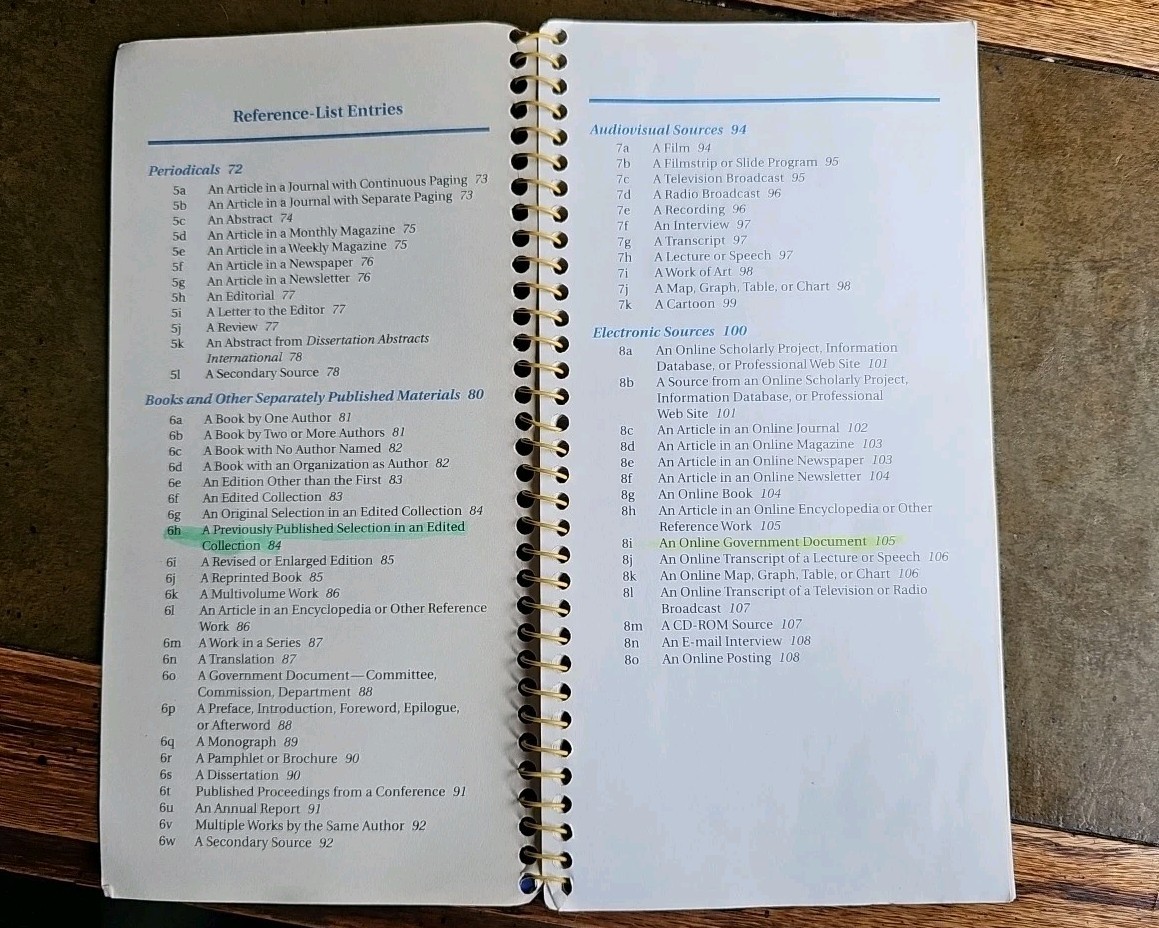 Reference-List Entries
Periodicals 72
5a An Article in a Journal with Continuous Paging 73
5b An Article in a Journal with Separate Paging 73
5c An Abstract 74
5d An Article in a Monthly Magazine 75
5e An Article in a Weekly Magazine 75
5f An Article in a Newspaper 76
5g An Article in a Newsletter 76
5h An Editorial 77
5i A Letter to the Editor 77
5j A Review 77
5k An Abstract from Dissertation Abstracts
International 78
5l A Secondary Source 78
Books and Other Separately Published Materials 80
6a A Book by One Author 81
6b A Book by Two or More Authors 81
6c A Book with No Author Named 82
6d A Book with an Organization as Author 82
6e An Edition Other than the First 83
6f An Edited Collection 83
6g An Original Selection in an Edited Collection 84
6h A Previously Published Selection in an Edited
Collection 84
6i A Revised or Enlarged Edition 85
6j A Reprinted Book 85
6k A Multivolume Work 86
6l An Article in an Encyclopedia or Other Reference
Work 86
6m A Work in a Series 87
6n A Translation 87
6o A Government Document—Committee,
Commission, Department 88
6p A Preface, Introduction, Foreword, Epilogue,
or Afterword 88
6q A Monograph 89
6r A Pamphlet or Brochure 90
6s A Dissertation 90
6t Published Proceedings from a Conference 91
6u An Annual Report 91
6v Multiple Works by the Same Author 92
6w A Secondary Source 92
Audiovisual Sources 94
7a A Film 94
7b A Filmstrip or Slide Program 95
7c A Television Broadcast 95
7d A Radio Broadcast 96
7e A Recording 96
7f An Interview 97
7g A Transcript 97
7h A Lecture or Speech 97
7i A Work of Art 98
7j A Map, Graph, Table, or Chart 98
7k A Cartoon 99
Electronic Sources 100
8a An Online Scholarly Project, Information
Database, or Professional Web Site 101
8b A Source from an Online Scholarly Project,
Information Database, or Professional
Web Site 101
8c An Article in an Online Journal 102
8d An Article in an Online Magazine 103
8e An Article in an Online Newspaper 103
8f An Article in an Online Newsletter 104
8g An Online Book 104
8h An Article in an Online Encyclopedia or Other
Reference Work 105
8i An Online Government Document 105
8j An Online Transcript of a Lecture or Speech 106
8k An Online Map, Graph, Table, or Chart 106
8l An Online Transcript of a Television or Radio
Broadcast 107
8m A CD-ROM Source 107
8n An E-mail Interview 108
8o An Online Posting 108